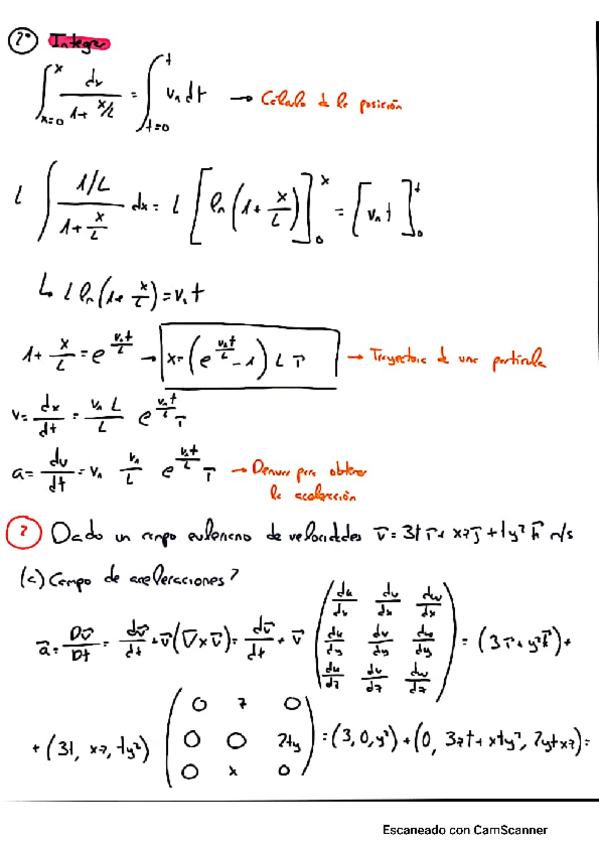 2º Integrar
∫_{x=0}^{x} dx / (1 + x/L) = ∫_{t=0}^{t} v₁ dt → Cálculo de la posición
L ∫ (1/L) / (1 + x/L) dx = L [ln(1 + x/L)]₀ˣ = [v₁ t]₀ᵗ
↳ L ln(1 + x/L) = v₁ t
1 + x/L = e^{v₁t/L} → x = (e^{v₁t/L} - 1) L i → Trayectoria de una partícula
v = dx/dt = v₁ L/L e^{v₁t/L} i
a = dv/dt = v₁ v₁/L e^{v₁t/L} i → Derivar para obtener
la aceleración
2 Dado un campo euleriano de velocidades v̄ = 3t i + xz j + ty² k m/s
(a) Campo de aceleraciones?
ā = Dv̄/Dt = dv̄/dt + v̄(∇×v̄) = dv̄/dt + v̄ (du/dx dv/dx dw/dx; du/dy dv/dy dw/dy; du/dz dv/dz dw/dz) = (3 i + y² k) +
+ (3t, xz, ty²) (0 z 0; 0 0 2ty; 0 x 0) = (3, 0, y²) + (0, 3zt + xty², 2ytxz) =
Escaneado con CamScanner